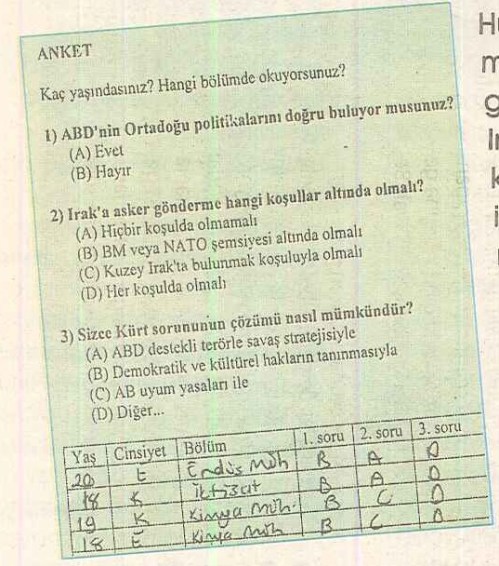 ANKET
Kaç yaşındasınız? Hangi bölümde okuyorsunuz?
1) ABD'nin Ortadoğu politikalarını doğru buluyor musunuz?
(A) Evet
(B) Hayır
2) Irak'a asker gönderme hangi koşullar altında olmalı?
(A) Hiçbir koşulda olmamalı
(B) BM veya NATO şemsiyesi altında olmalı
(C) Kuzey Irak'ta bulunmak koşuluyla olmalı
(D) Her koşulda olmalı
3) Sizce Kürt sorununun çözümü nasıl mümkündür?
(A) ABD destekli terörle savaş stratejisiyle
(B) Demokratik ve kültürel hakların tanınmasıyla
(C) AB uyum yasaları ile
(D) Diğer...
Yaş Cinsiyet Bölüm 1. soru 2. soru 3. soru
20 E Endüs Müh B A D
18 K İktisat B A D
19 K Kimya Müh. B C D
18 E Kimya Müh B C D